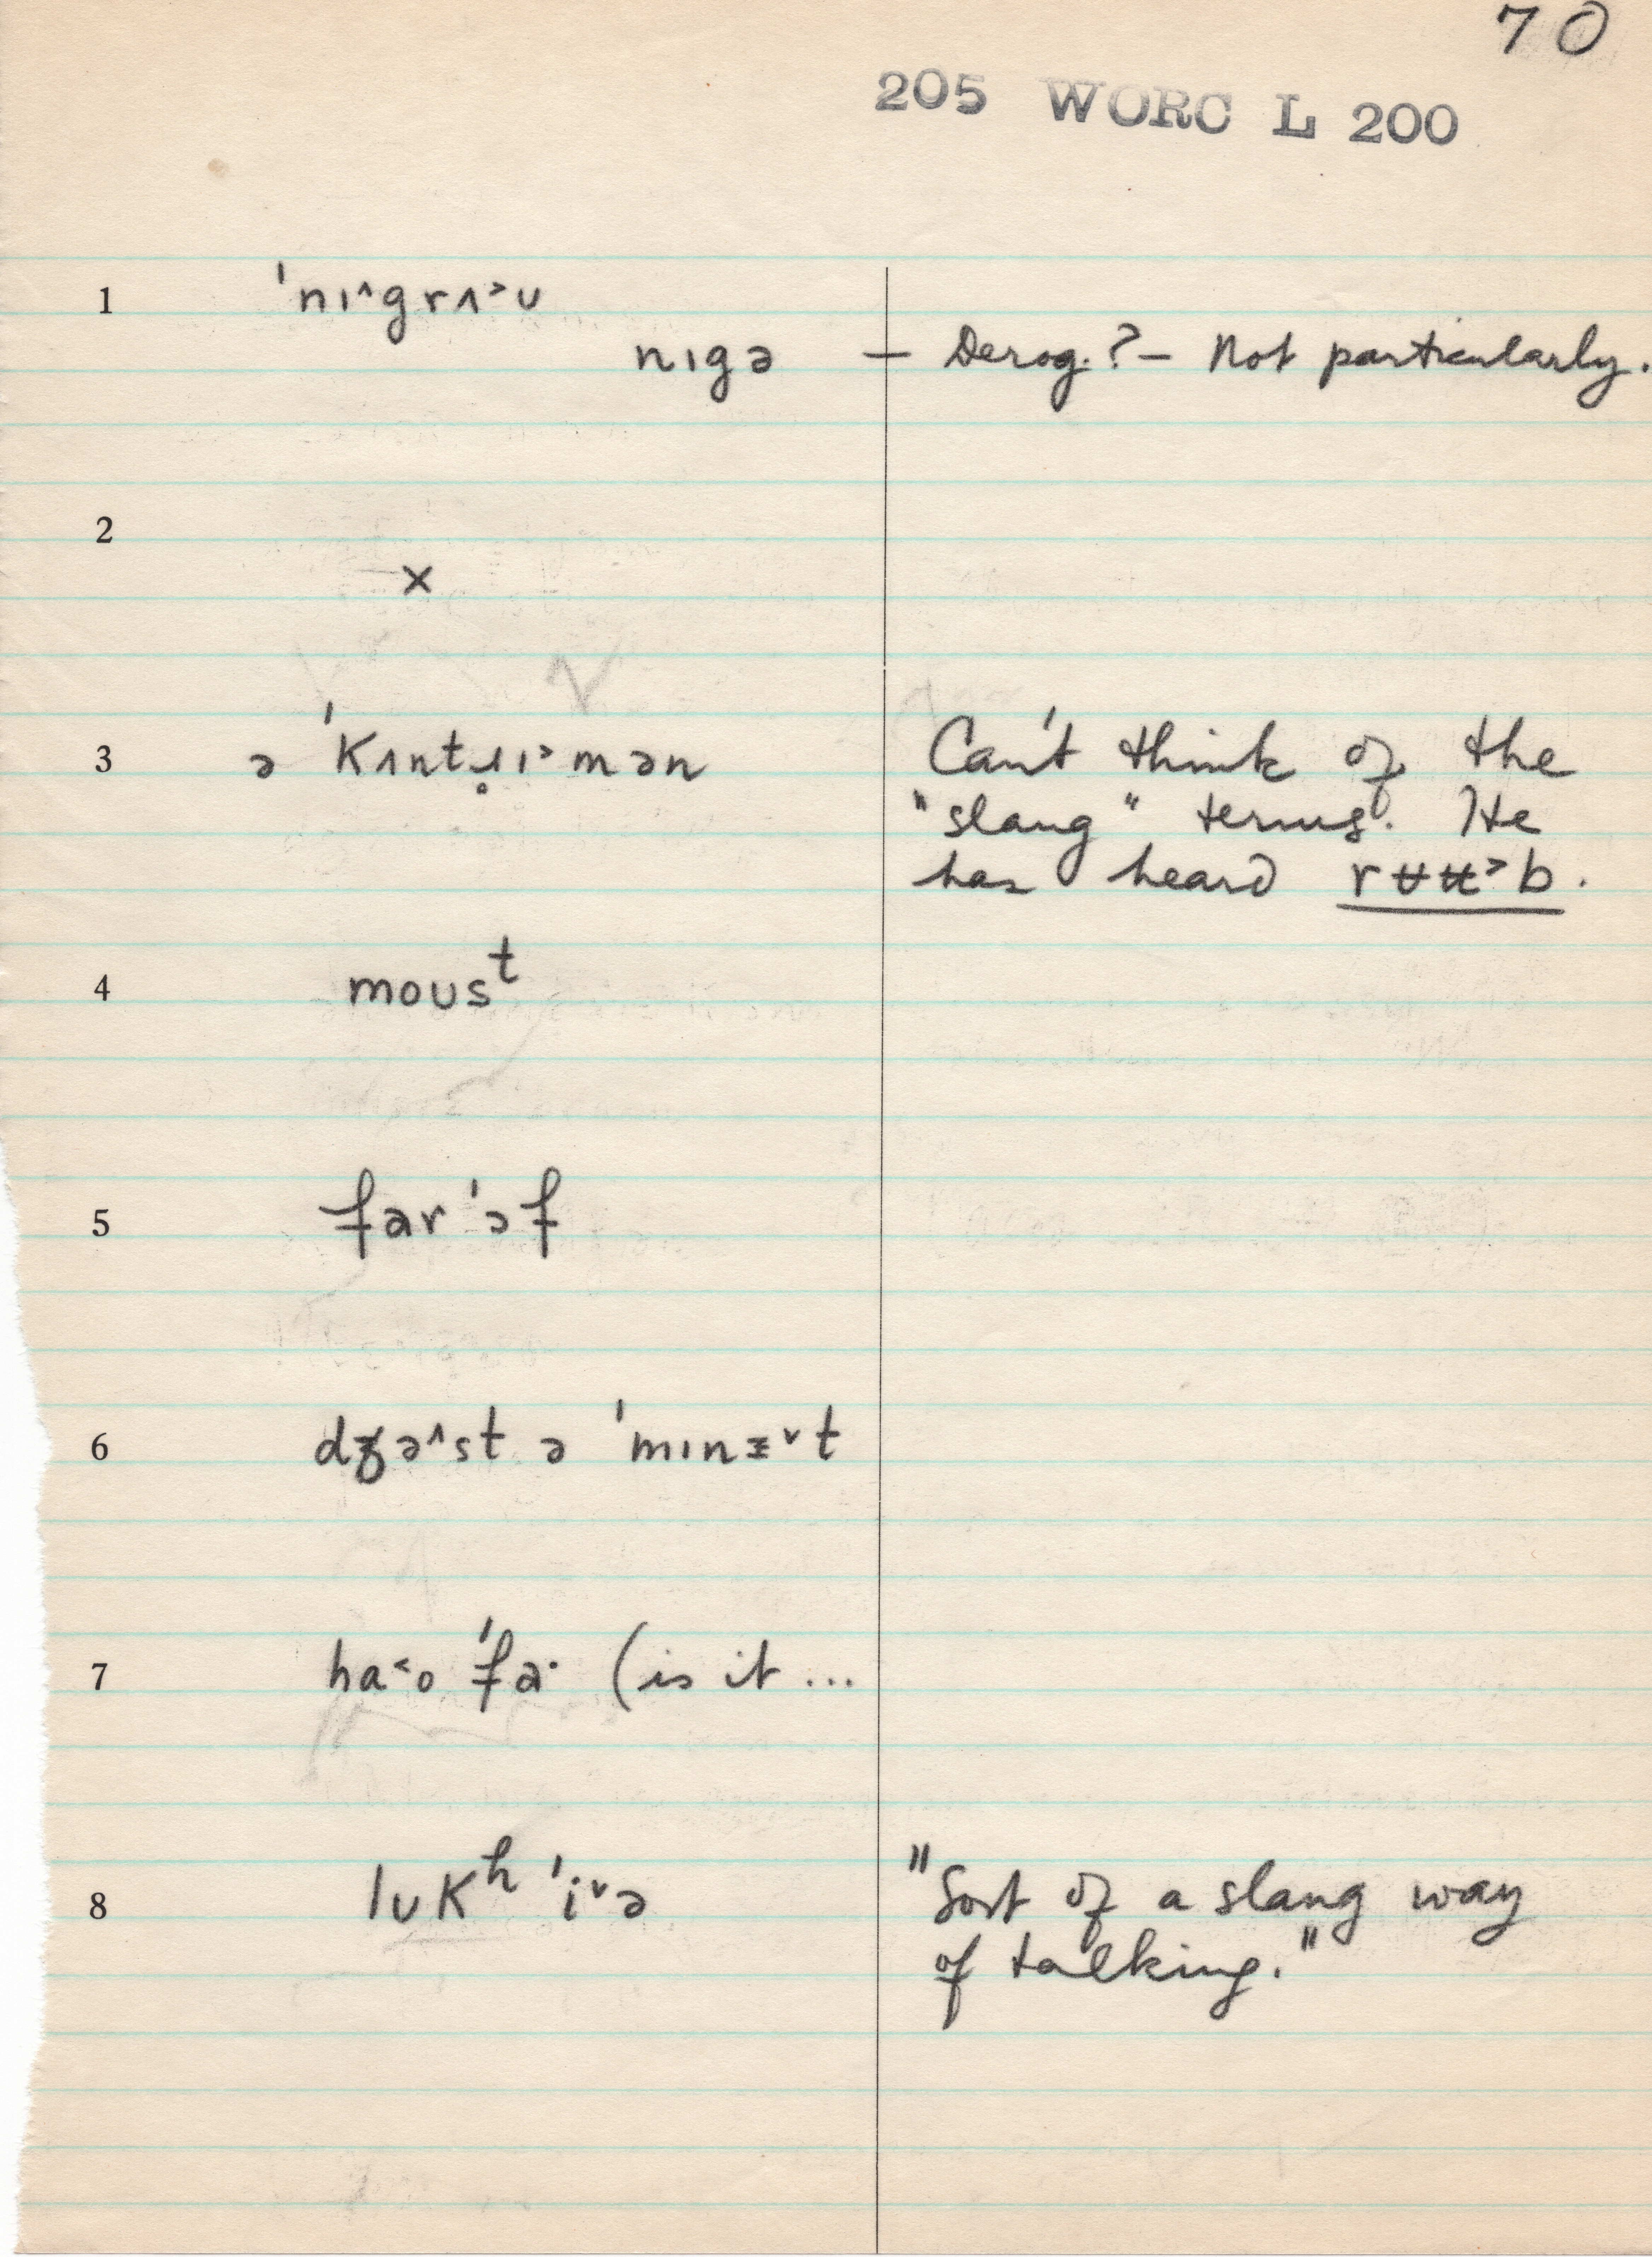 70
205 WORC L 200
1 ˈnɪ^grʌ˃ʊ
nɪgə — Derog.? — Not particularly.
2
×
3 ə ˈkʌntɹ̥ɪ˃mən Can't think of the
"slang" terms. He
has heard rʉʉ˃b.
4 moʊsᵗ
5 far ˈɔf
6 dʒə^st ə ˈmɪnɪ̵ˇt
7 ha˂o ˈfa· (is it ...
8 lʊkʰ ˈiˇə "Sort of a slang way
of talking."